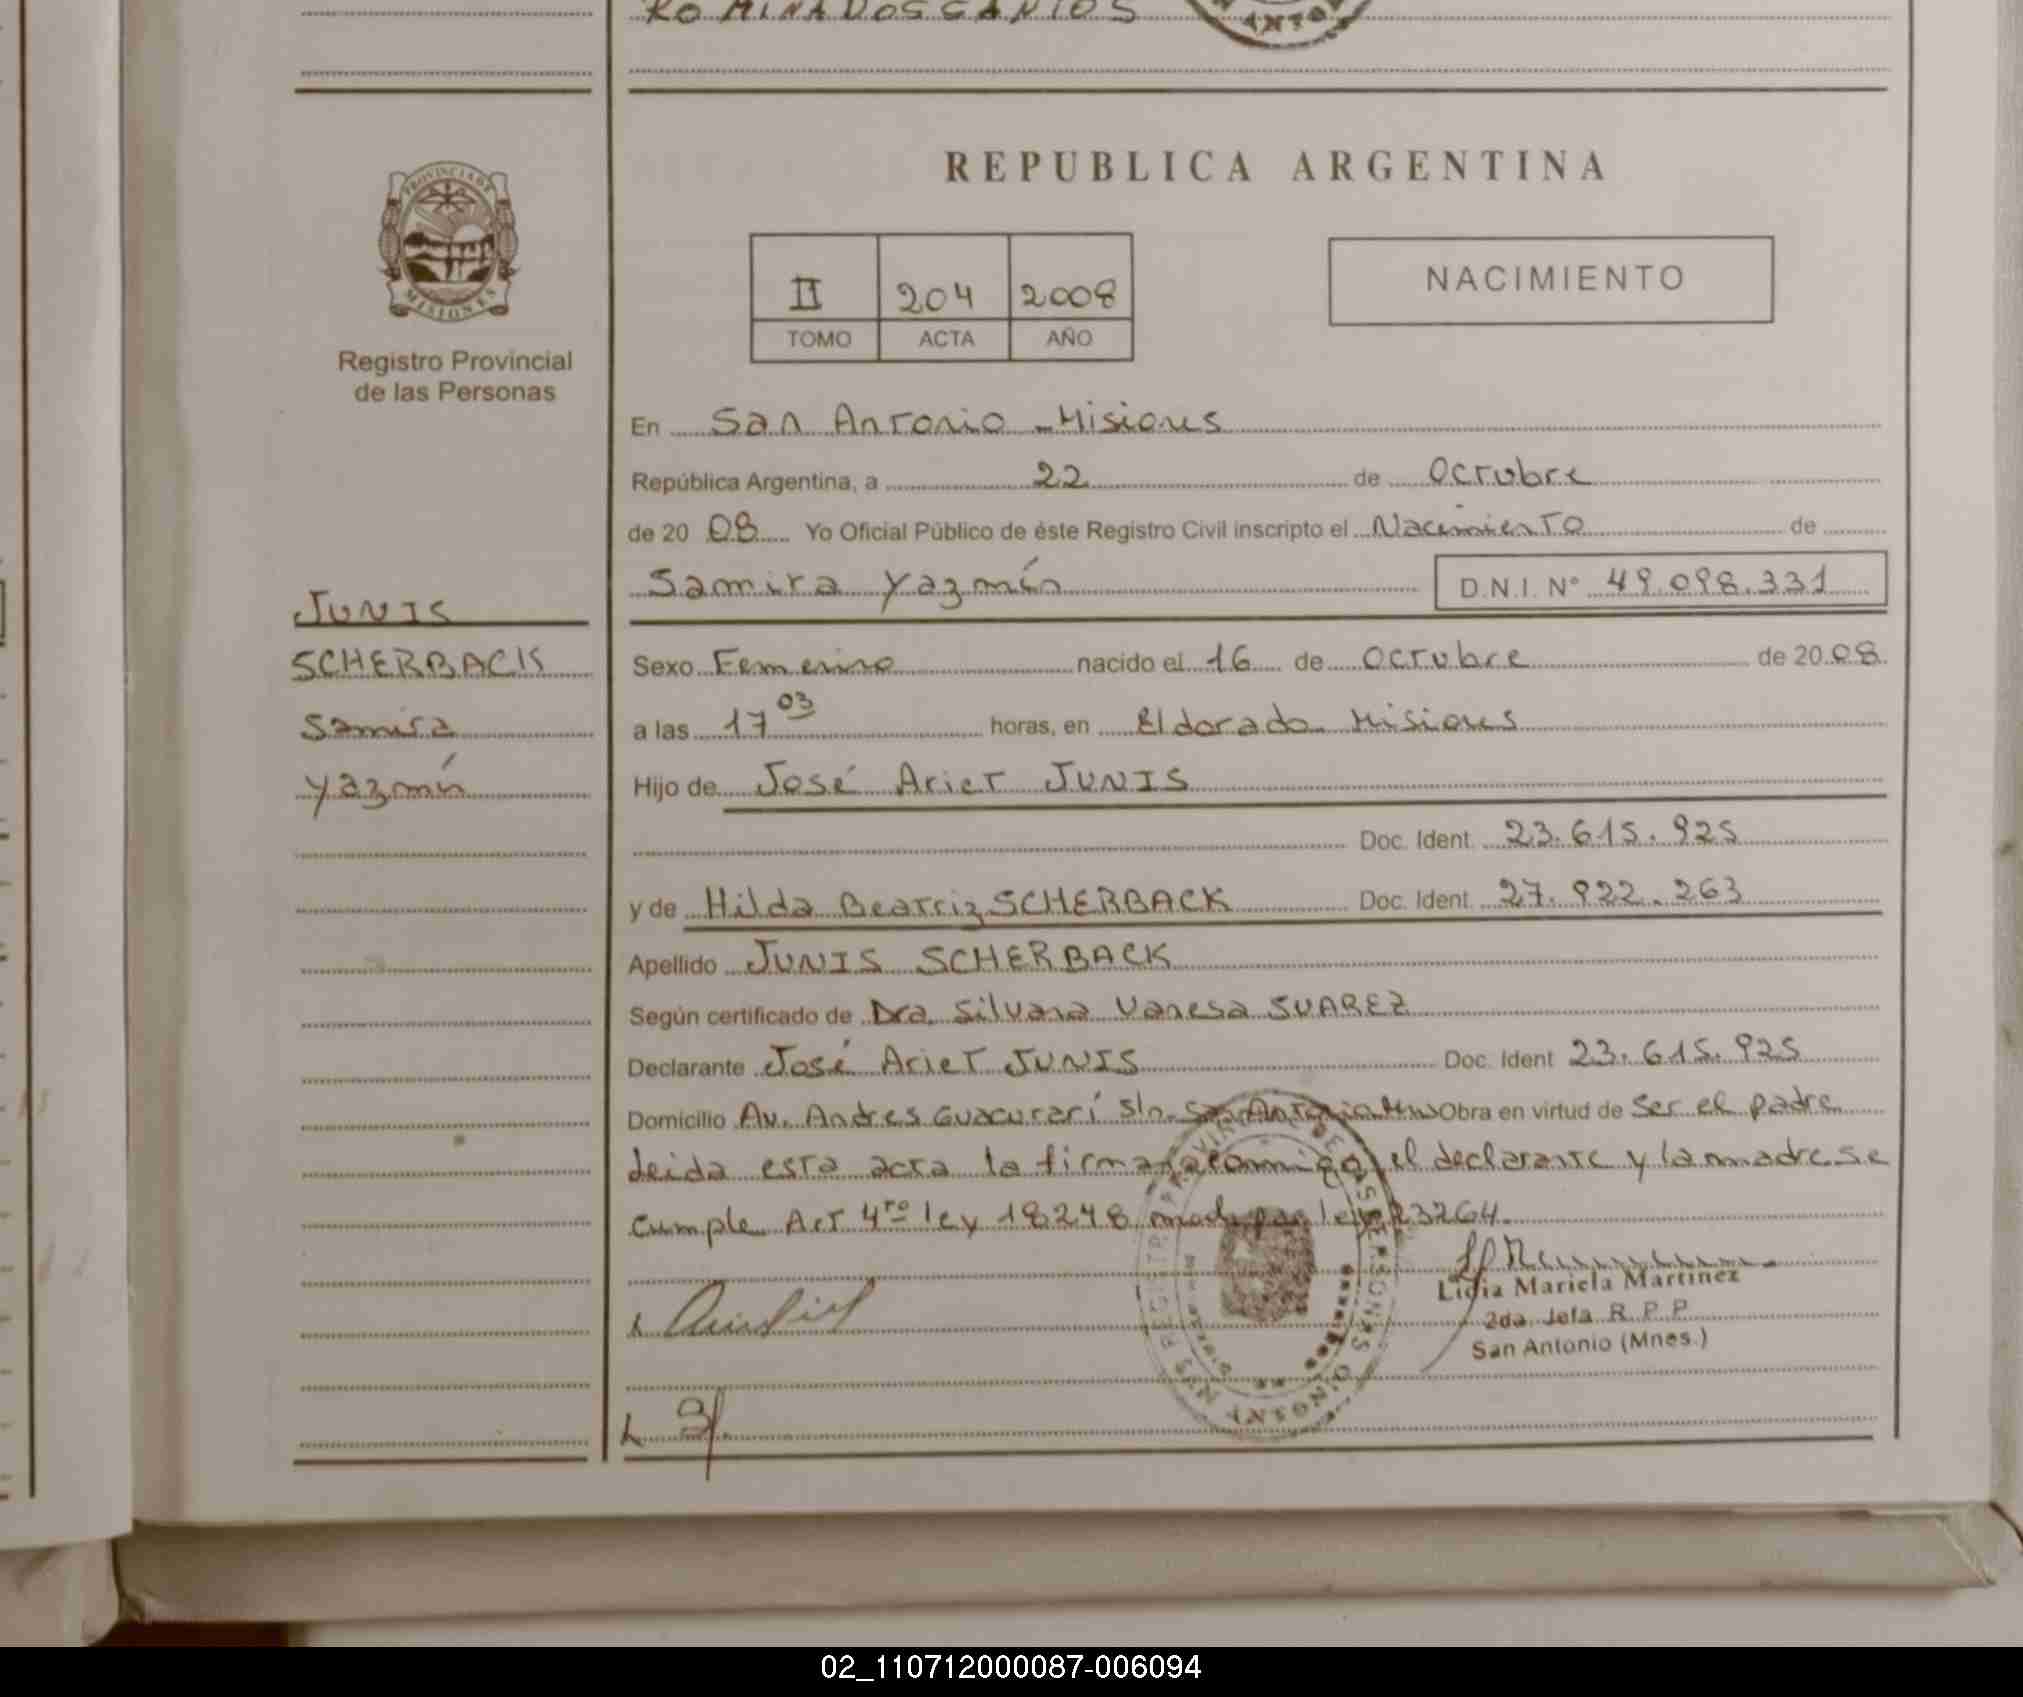 ROMINA DOS SANTOS
PROVINCIA DE
MISIONES
Registro Provincial
de las Personas
REPUBLICA ARGENTINA
II 204 2008
TOMO ACTA AÑO
NACIMIENTO
En San Antonio - Misiones
República Argentina, a 22 de Octubre
de 20 08 Yo Oficial Público de éste Registro Civil inscripto el Nacimiento de
Samira Yazmín D.N.I. N° 49.098.331
JUNIS
SCHERBACK
Samira
Yazmín
Sexo Femenino nacido el 16 de Octubre de 20 08
a las 17 03 horas, en Eldorado Misiones
Hijo de José Ariet JUNIS
Doc. Ident. 23.615.925
y de Hilda Beatriz SCHERBACK Doc. Ident. 27.922.263
Apellido JUNIS SCHERBACK
Según certificado de Dra. Silvana Vanesa SUAREZ
Declarante José Ariet JUNIS Doc. Ident 23.615.925
Domicilio Av. Andres Guacurarí s/n. San Antonio Obra en virtud de Ser el padre
leida esta acta la firma conmigo el declarante y la madre se
cumple Art 4ro ley 18248 mod por ley 23264.
Lidia Mariela Martinez
2da. Jefa R. P. P.
San Antonio (Mnes.)
02_110712000087-006094